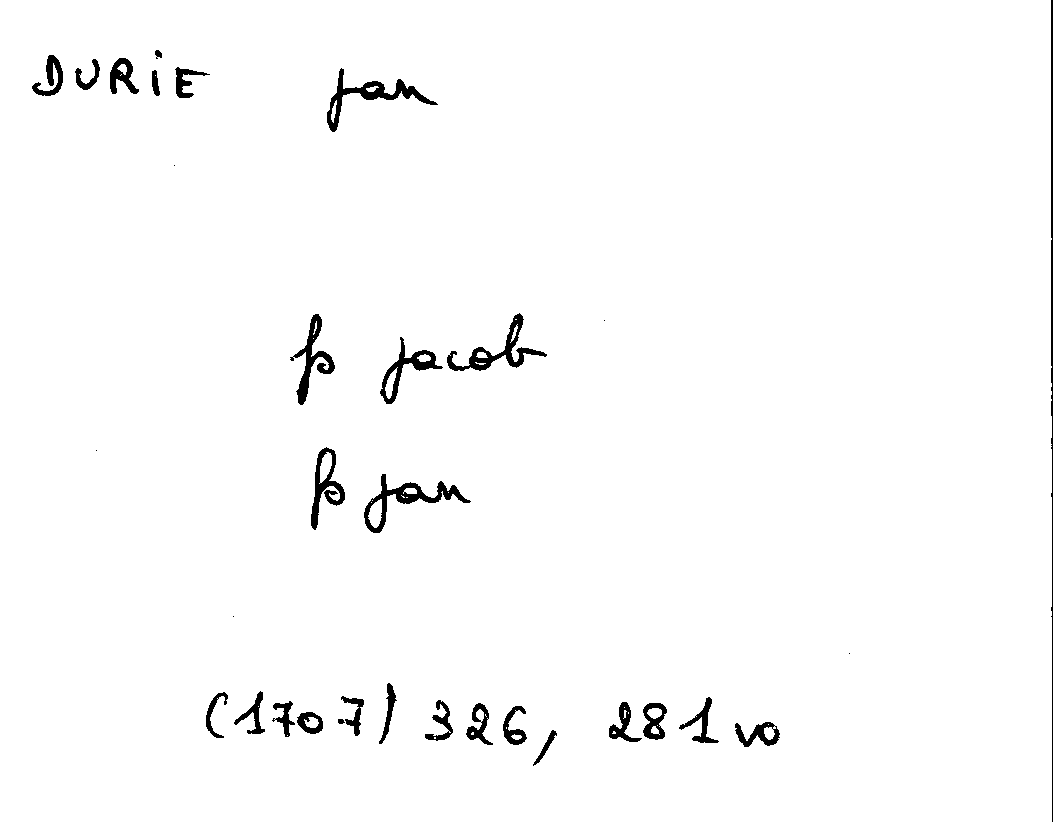 DURIE jan
fs jacob
fs jan
(1707) 326, 281vo